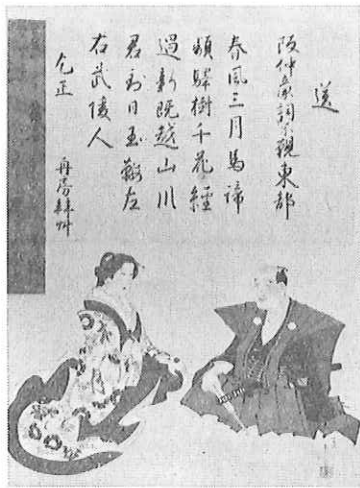 送
阪仲彦詞宗観東都
春風三月馬蹄
頻驛樹千花經
過新既越山川
君到日玉鞍左
右武陵人
乞正